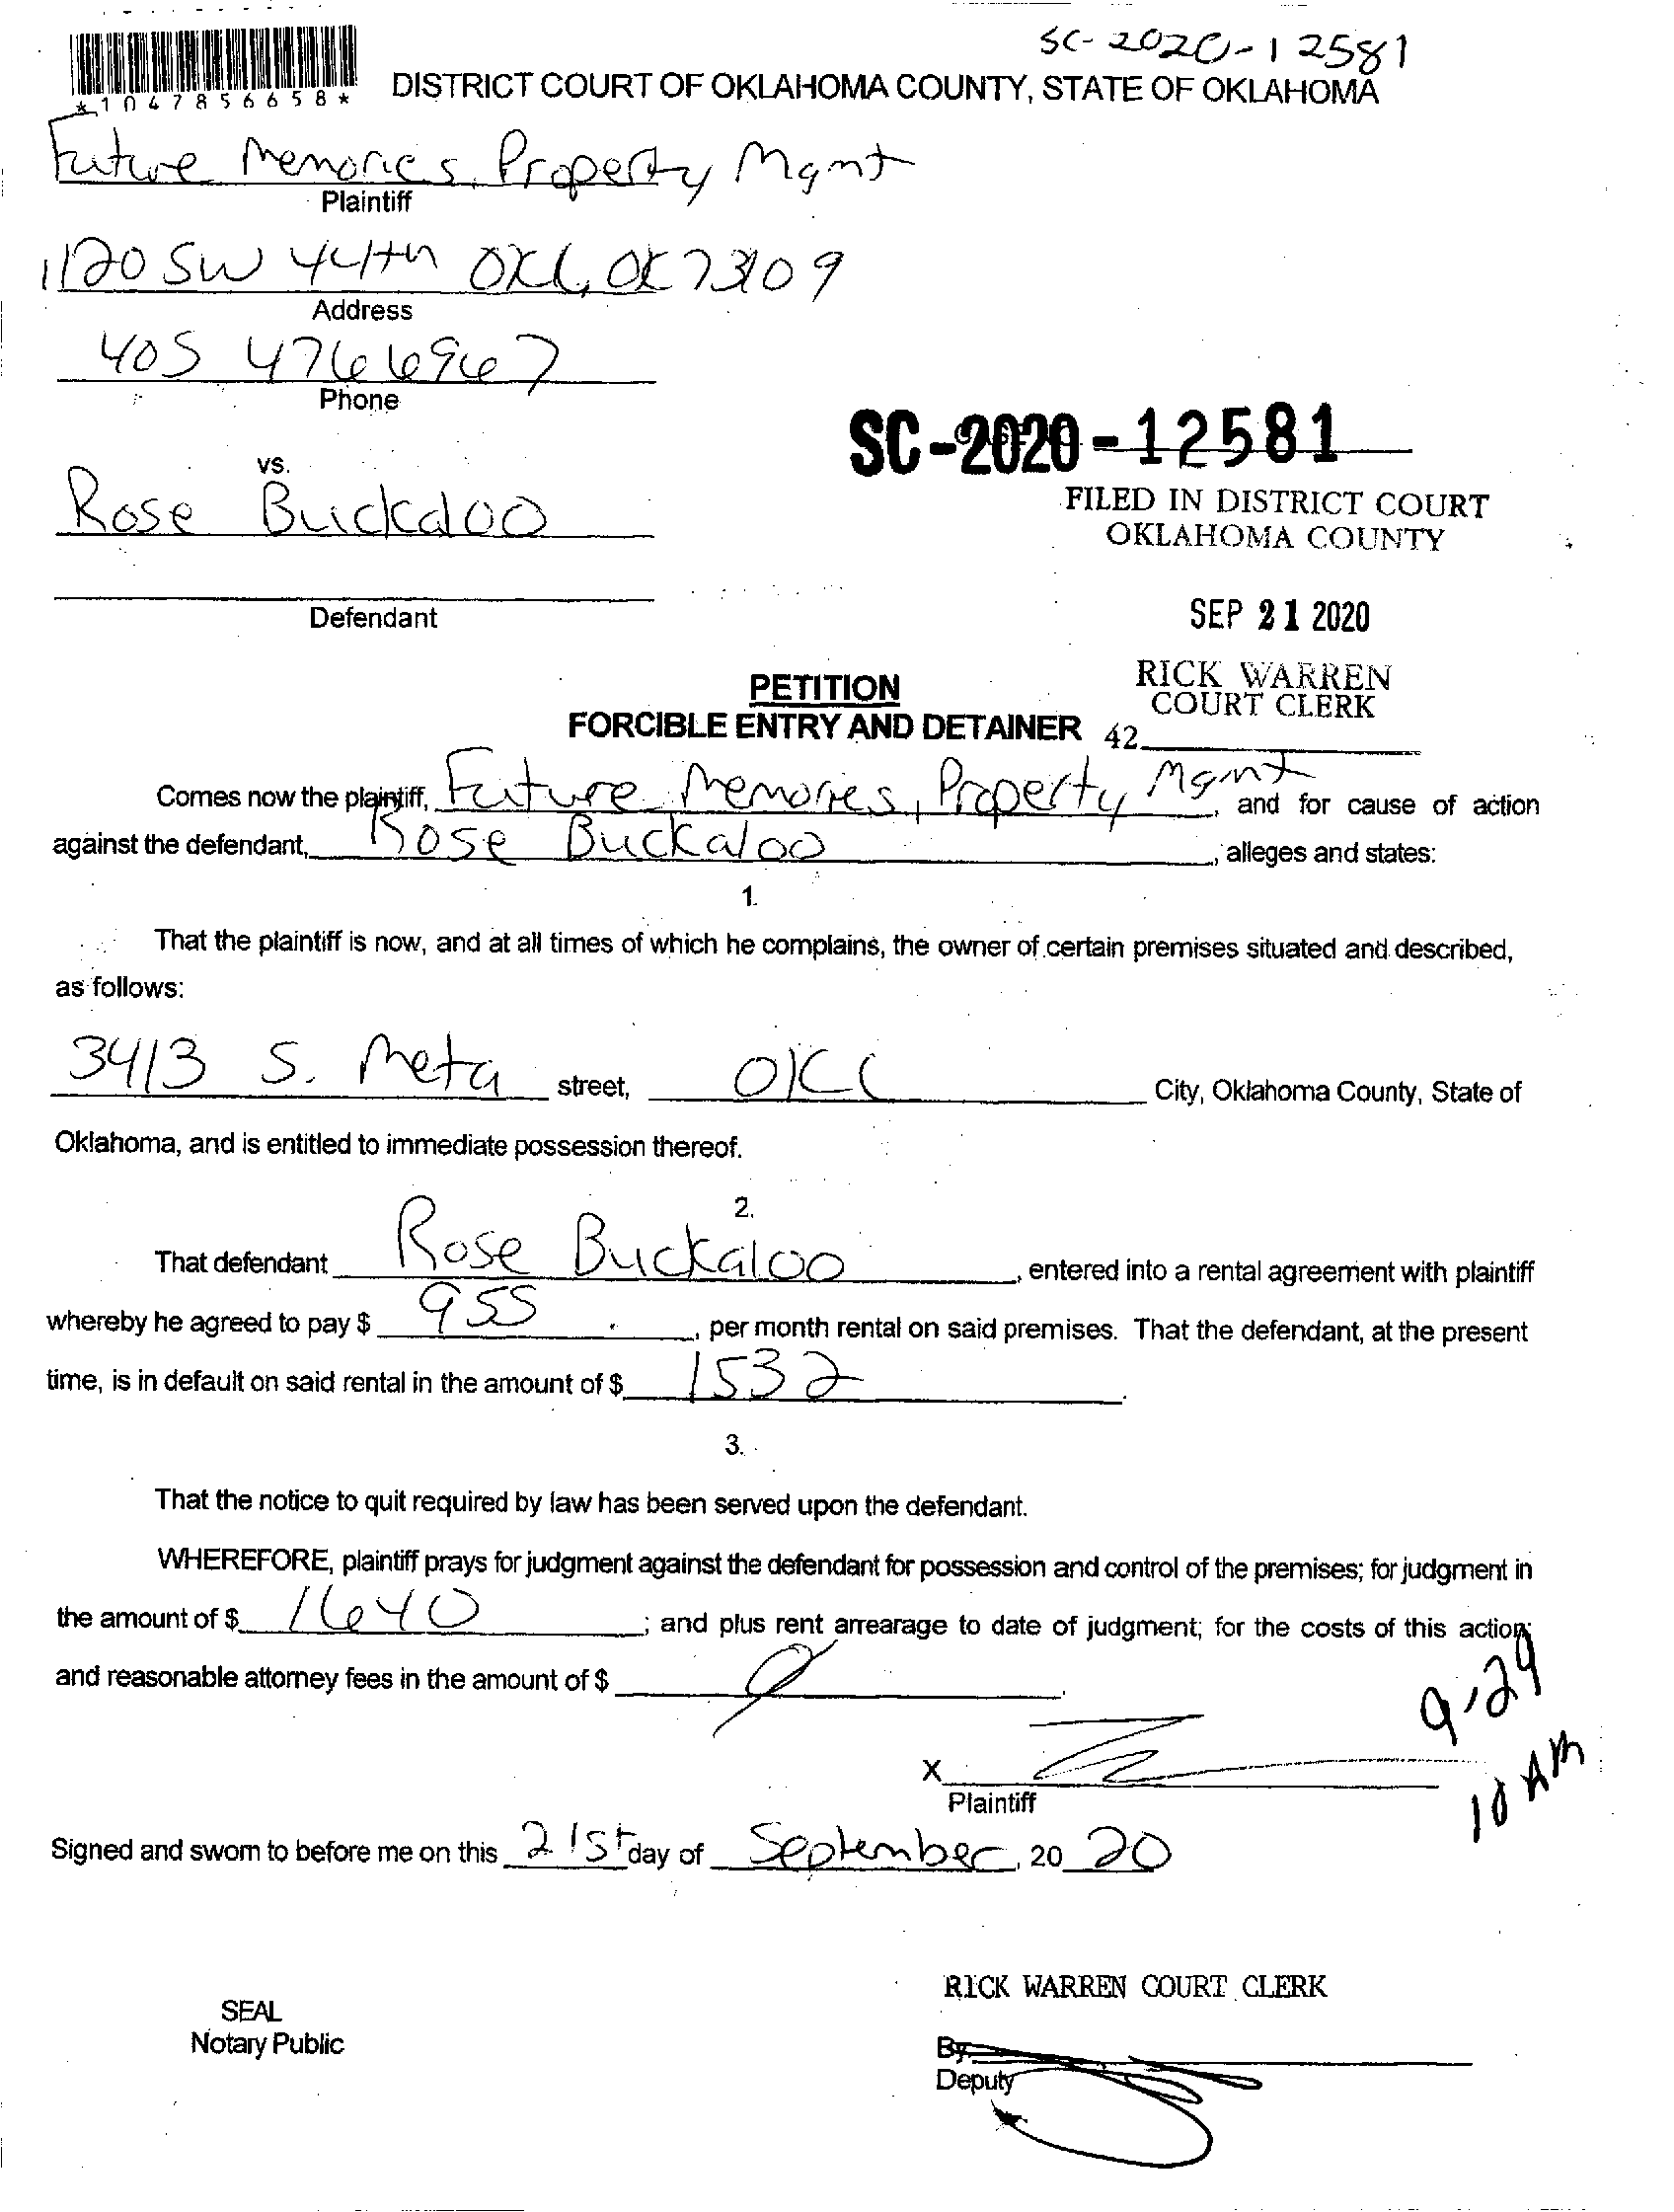 SC-2020-12581
*1047856658*
DISTRICT COURT OF OKLAHOMA COUNTY, STATE OF OKLAHOMA
Future Memories, Property Mgmt
Plaintiff
1120 SW 44th OKC, OK 73109
Address
405 476 6967
Phone
SC-2020-12581
vs.
Rose Buckaloo
FILED IN DISTRICT COURT
OKLAHOMA COUNTY
Defendant
SEP 21 2020
RICK WARREN
COURT CLERK
PETITION
FORCIBLE ENTRY AND DETAINER
42
Comes now the plaintiff, Future Memories, Property Mgmt, and for cause of action
against the defendant, Rose Buckaloo, alleges and states:
1.
That the plaintiff is now, and at all times of which he complains, the owner of certain premises situated and described,
as follows:
3413 S. Meta street, OKC City, Oklahoma County, State of
Oklahoma, and is entitled to immediate possession thereof.
2.
That defendant Rose Buckaloo, entered into a rental agreement with plaintiff
whereby he agreed to pay $ 955, per month rental on said premises. That the defendant, at the present
time, is in default on said rental in the amount of $ 1532.
3.
That the notice to quit required by law has been served upon the defendant.
WHEREFORE, plaintiff prays for judgment against the defendant for possession and control of the premises; for judgment in
the amount of $ 1640; and plus rent arrearage to date of judgment; for the costs of this action;
and reasonable attorney fees in the amount of $
9-29
10 AM
X
Plaintiff
Signed and sworn to before me on this 21st day of September, 20 20
RICK WARREN COURT CLERK
SEAL
Notary Public
By
Deputy